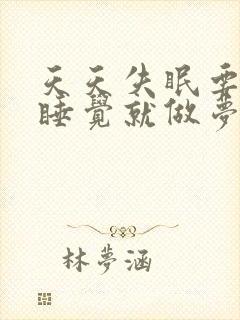 天天失眠要
睡覺就做夢
林夢涵